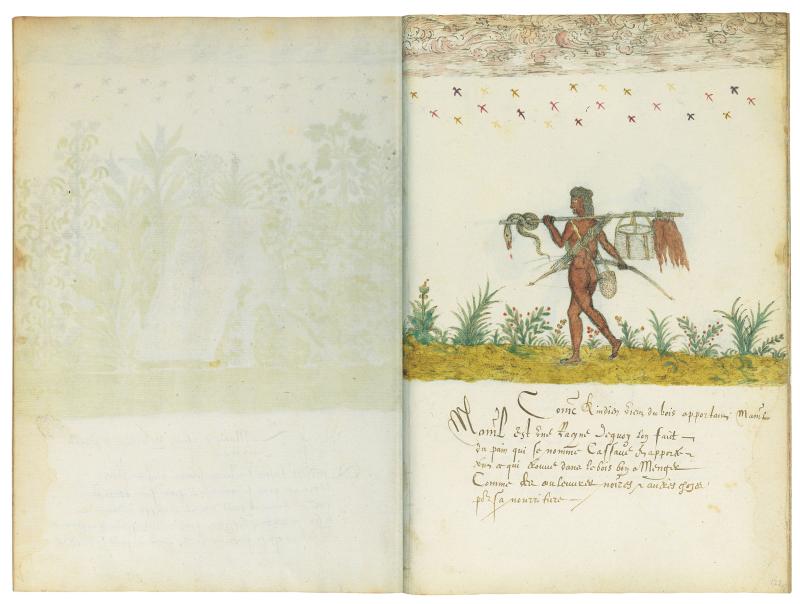 Come l indien vien du bois apportant Mamel
Mamel est une Racyne dequoy lon fait
du pain qui se nomme Cassave & apporte
ce qui trouve dans le bois bon a Menger
Comme couleuvres noires & autres choses
por sa nourriture